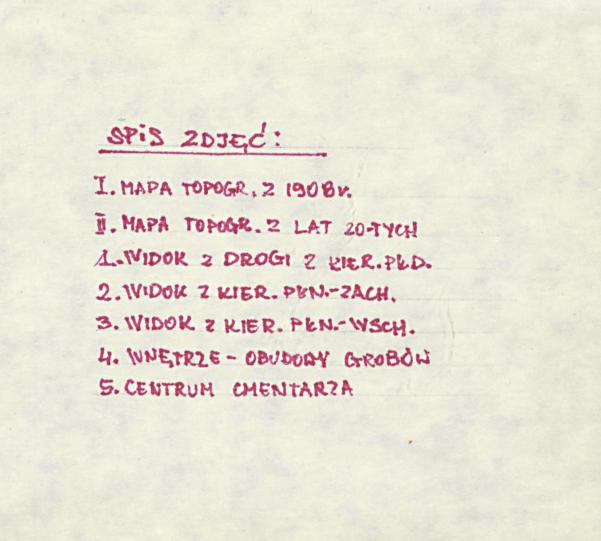 SPIS ZDJĘĆ:
I. MAPA TOPOGR. Z 1908r.
II. MAPA TOPOGR. Z LAT 20-TYCH
1. WIDOK Z DROGI Z KIER. PŁD.
2. WIDOK Z KIER. PŁN.-ZACH.
3. WIDOK Z KIER. PŁN.-WSCH.
4. WNĘTRZE - OBUDOWY GROBÓW
5. CENTRUM CMENTARZA